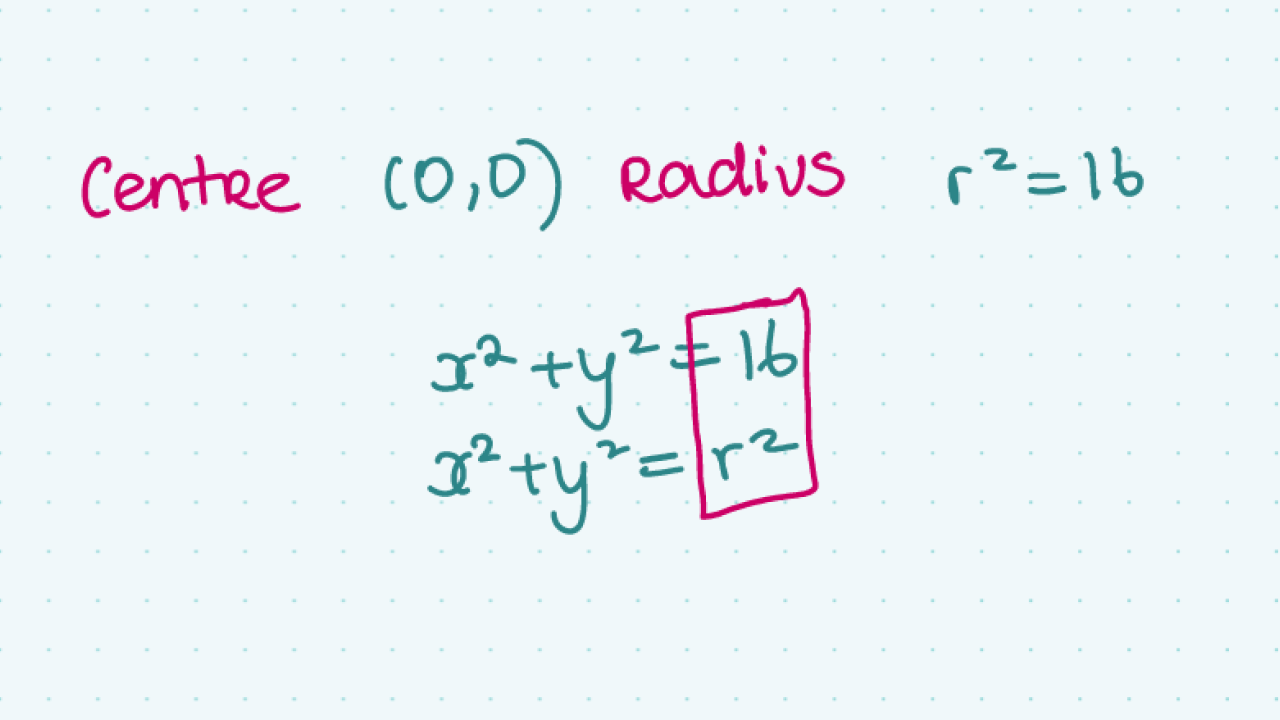 Centre (0,0) Radius r²=16
x²+y²=16
x²+y²=r²